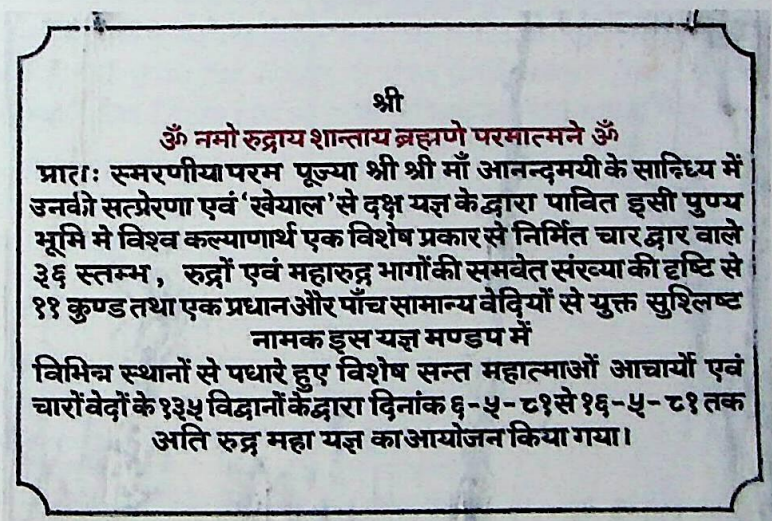 श्री
ॐ नमो रुद्राय शान्ताय ब्रह्मणे परमात्मने ॐ
प्रातः स्मरणीया परम पूज्या श्री श्री माँ आनन्दमयी के सान्निध्य में
उनकी सत्प्रेरणा एवं ‘खेयाल’ से दक्ष यज्ञ के द्वारा पावित इसी पुण्य
भूमि मे विश्व कल्याणार्थ एक विशेष प्रकार से निर्मित चार द्वार वाले
३६ स्तम्भ, रुद्रों एवं महारुद्र भागों की समवेत संख्या की दृष्टि से
११ कुण्ड तथा एक प्रधान और पाँच सामान्य वेदियों से युक्त सुश्लिष्ट
नामक इस यज्ञ मण्डप में
विभिन्न स्थानों से पधारे हुए विशेष सन्त महात्माओं आचार्यो एवं
चारों वेदों के १३५ विद्वानों के द्वारा दिनांक ६-५-८१ से १६-५-८१ तक
अति रुद्र महा यज्ञ का आयोजन किया गया।